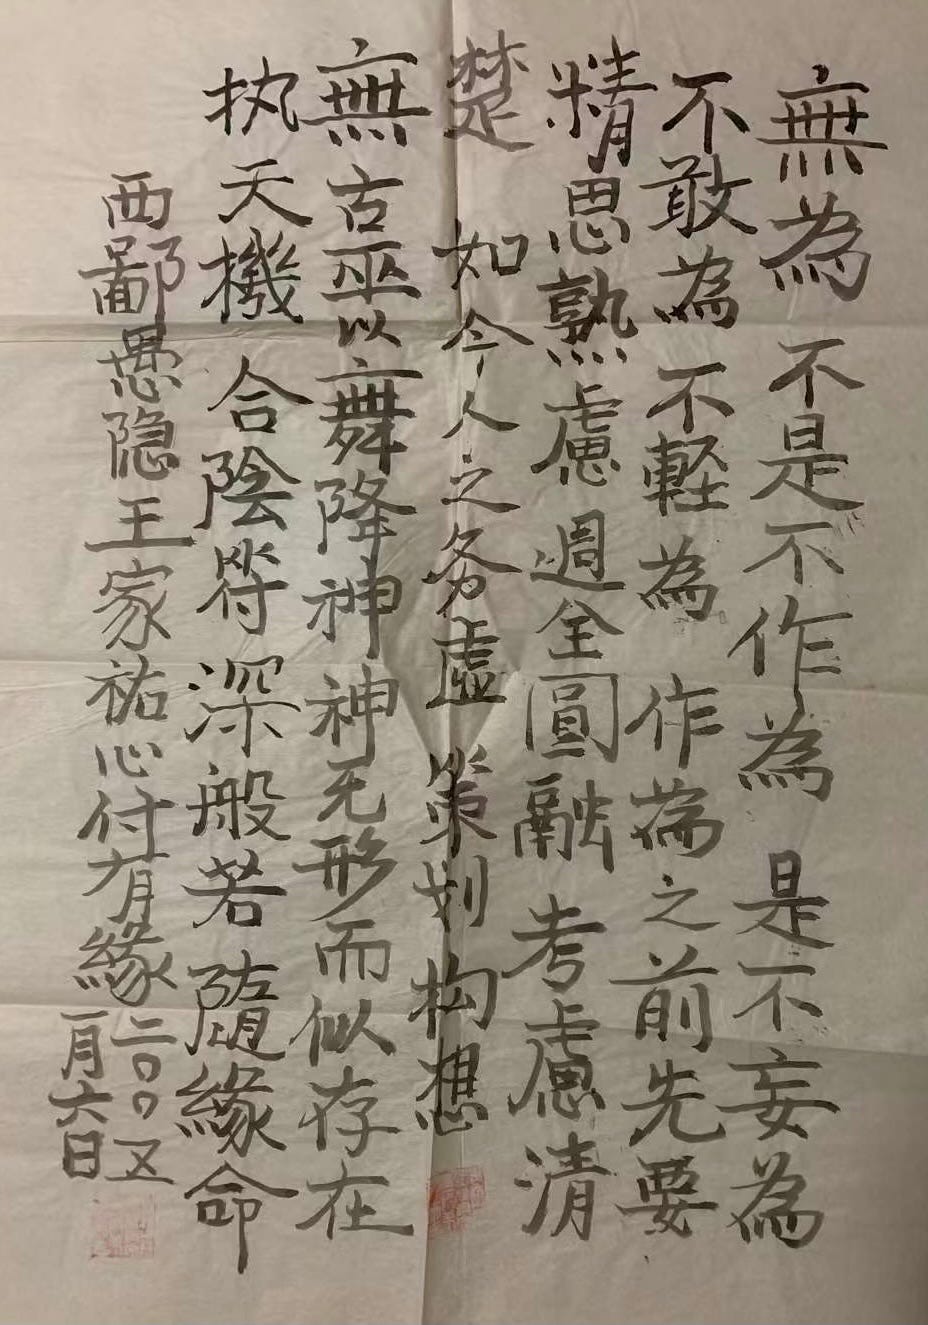 無為不是不作為是不妄為
不敢為不輕為作為之前先要
精思熟慮週全圓融考慮清
楚如今人之务虚策划构想
無古巫以舞降神神无形而似存在
执天機合陰符深般若隨緣命
西鄙愚隐王家祐心付有緣
二〇〇五
一月六日